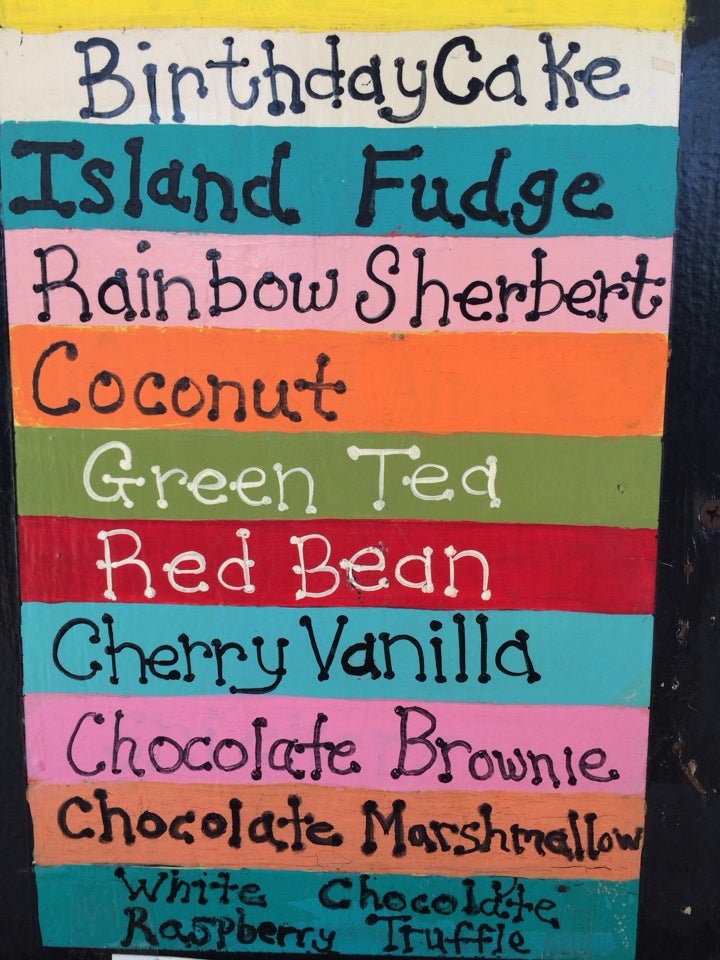 Birthday Cake
Island Fudge
Rainbow Sherbert
Coconut
Green Tea
Red Bean
Cherry Vanilla
Chocolate Brownie
Chocolate Marshmallow
White Chocolate
Raspberry Truffle